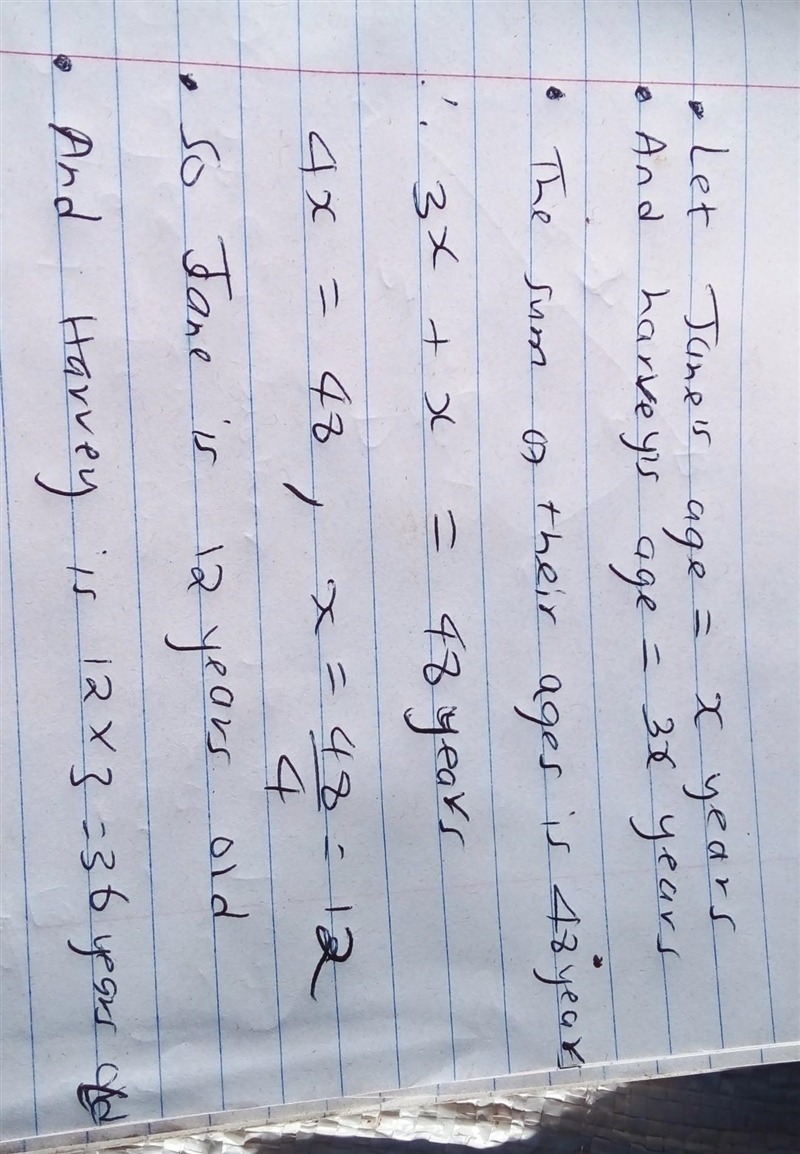 • Let Jane's age = x years
• And harvey's age = 3x years
• The sum of their ages is 48 years
∴ 3x + x = 48 years
4x = 48, x = 48/4 = 12
• So Jane is 12 years old
• And Harvey is 12 x 3 = 36 years old